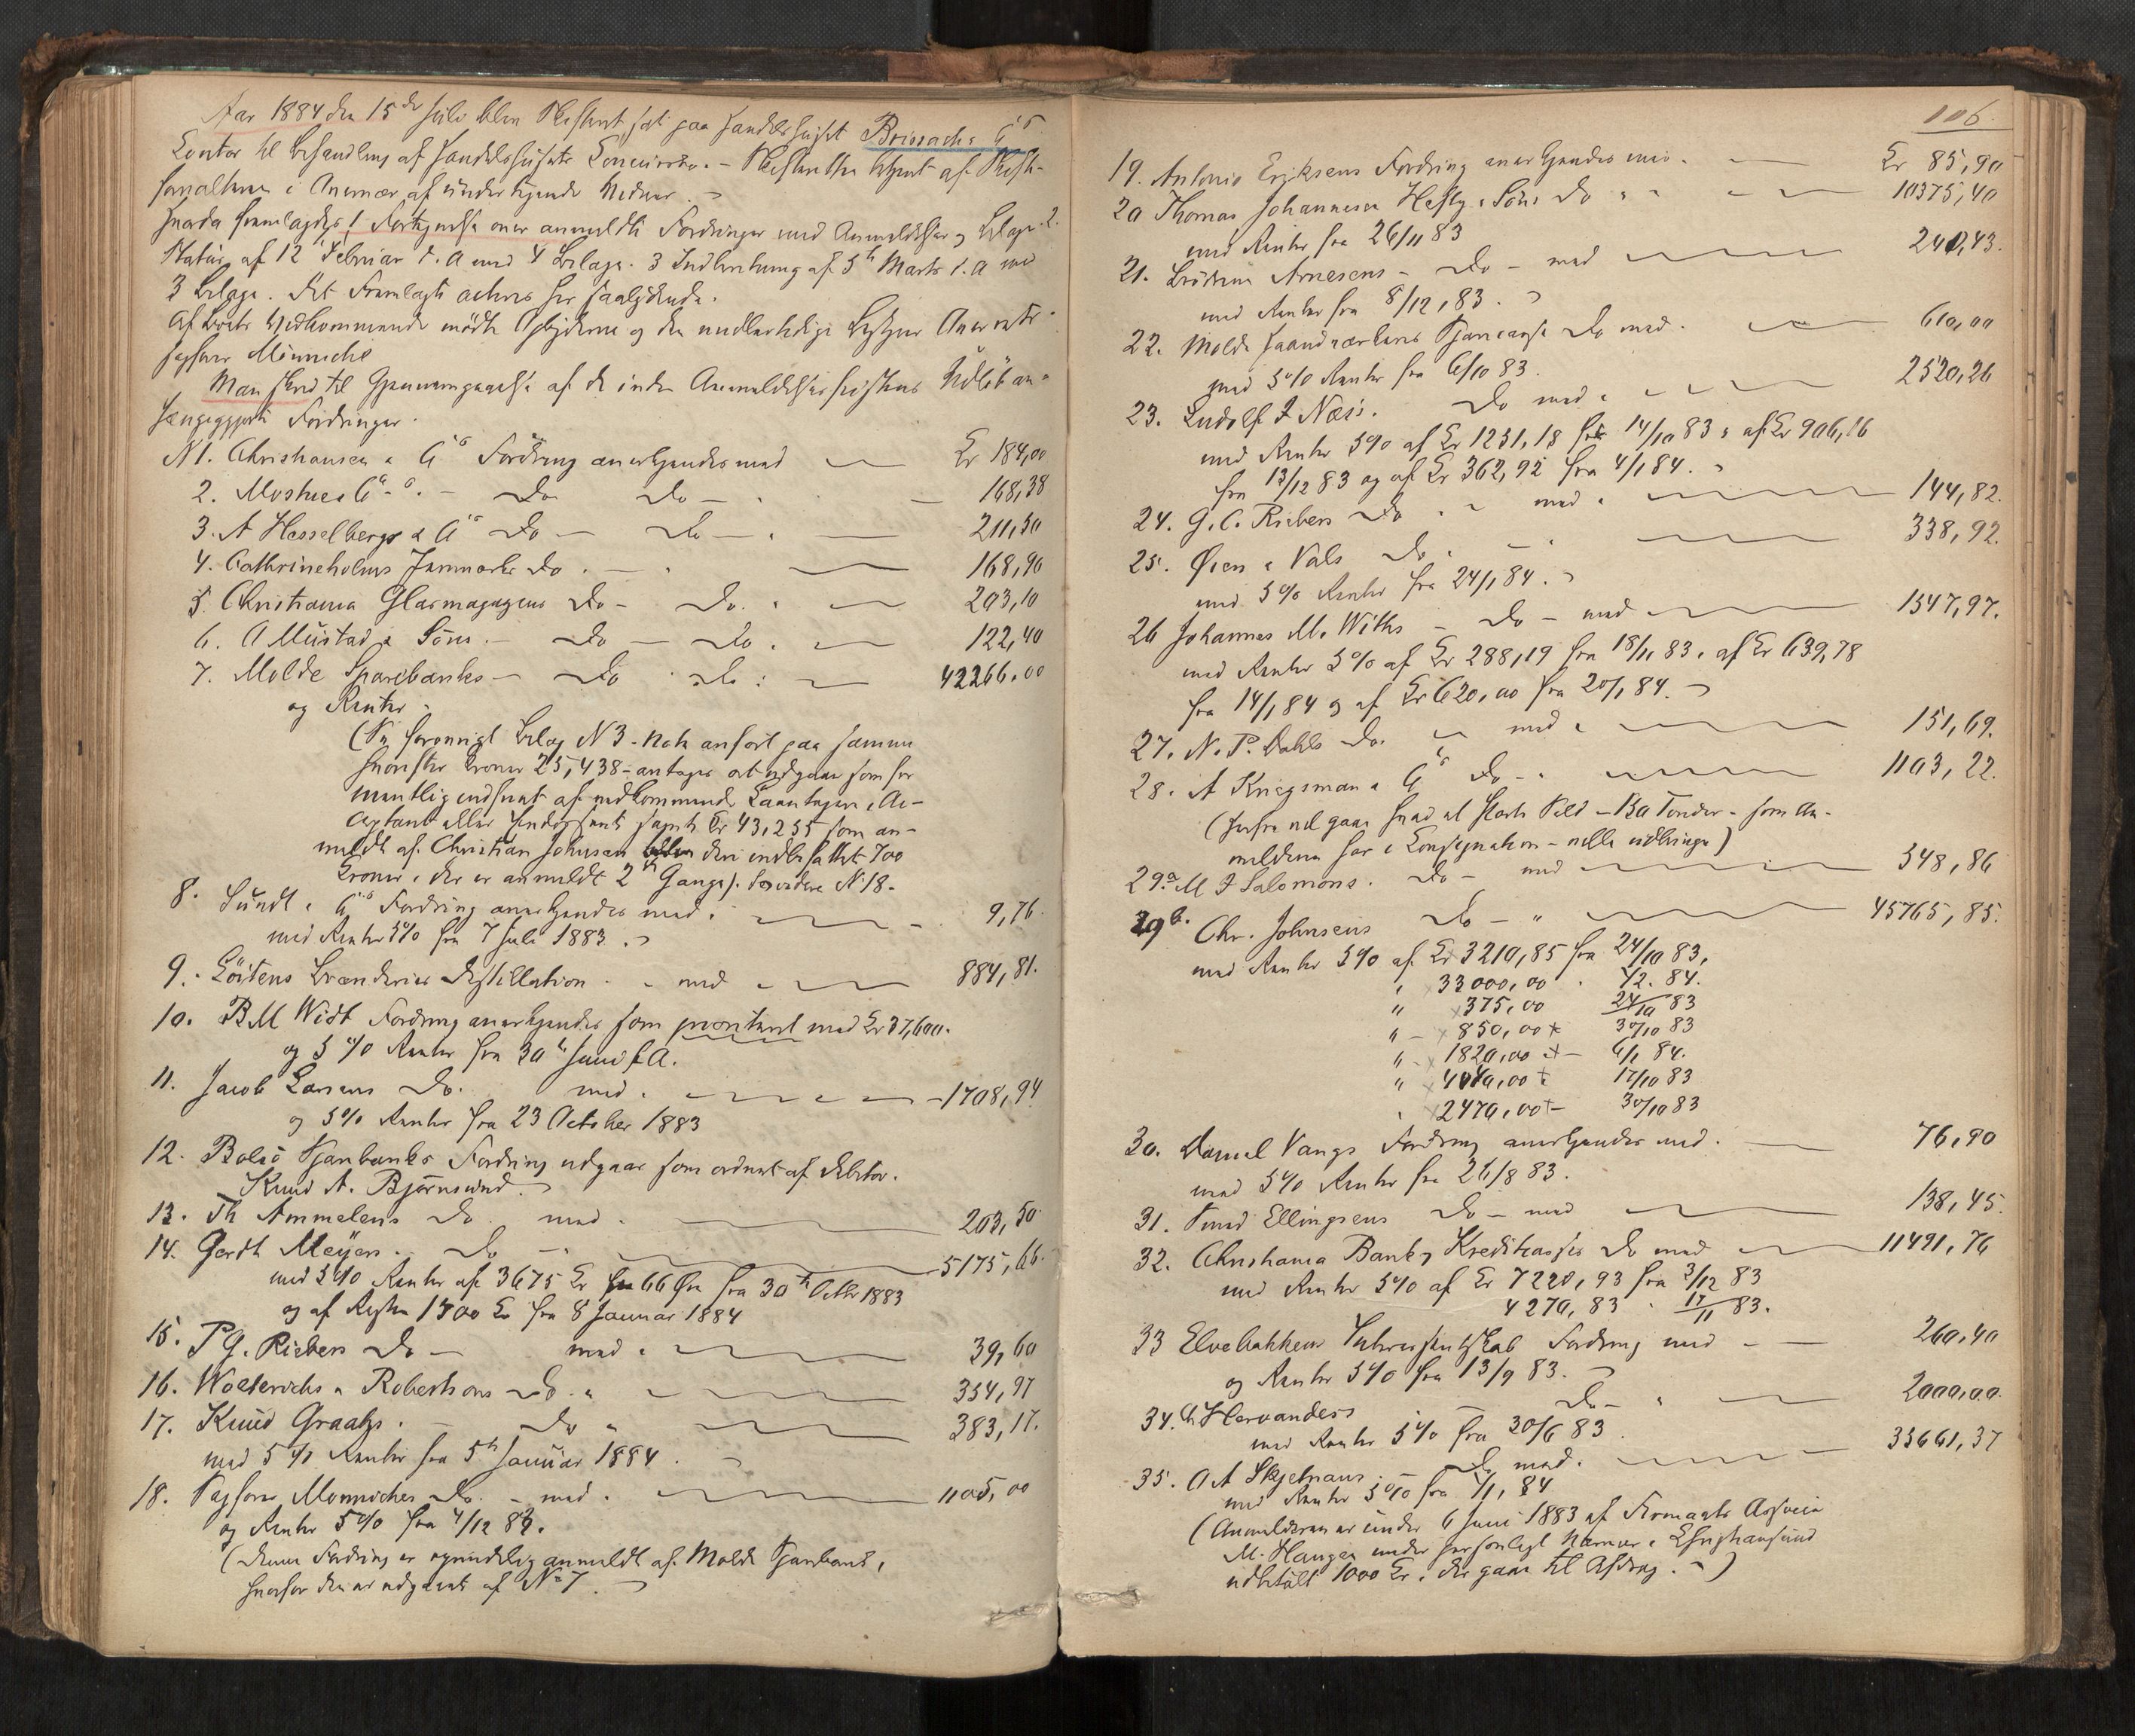 Aar 1884 den 15de Juli blev Skifteret sat paa Handelshuset Brissachs & Co
Contor til Behandling af Handelshusets Concursbo. - Skifteretten betjent af Skifte-
forvalteren i Nærvær af undertegnede Vidner.
Hvorda fremlagdes 1 Fortegnelse over anmeldte Fordringer med Anmeldelser og Bilage. 2.
Status af 12 Februar d. A med 4 Bilage. 3 Indberetning af 5te Marts d. A med
3 Bilage. Det Fremlagte acteres her saalydende.
Af Boets Vedkommende mødte og den midlertidige Bestyrer
Sagfører Münniche
Man skred til Gjennemgaaelse af de inden Anmeldelsesfristens Udløb an-
hængiggjorte Fordringer.
N 1. Christiansen & Co Fordring anerkjendes med Kr 184,00
2. Mostues Co - Do Do - 168,38
3. A Hesselbergs & Co Do - Do - 211,50
4. Cathrineholms Jernværks Do. - 168,90
5. Christiania Glasmagazins Do - Do. 203,10
6. O Mustad & Søns - Do - Do. 122,40
7. Molde Sparebanks - Do Do: 42266,00
og Renter.
(De forøvrigt Bilag N 3 - Nota anført paa samme
hvorefter Kroner 25,438 - antages at udgaar som for
mentlig indfriet af vedkommende Laantagere, Ac-
ceptant eller Endossent samt Kr 43,255 som an-
meldt af Christian Johnsen deri indbefattet 700
Kroner, der er anmeldt 2de Gange). Se videre N 18 -
8. Sundt & Co Fordring anerkjendes med. 9,76.
med Renter 5% fra 7 Juli 1883.
9. Løitens Brænderies Destillation - med 884,81.
10. B M Widt Fordring anerkjendes som prioritert med Kr 37,600.
og 5% Renter fra 30te Juni f A.
11. Jacob Larsens Do. med. - 1708,94
og 5% Renter fra 23 October 1883
12. Bolsø Sparebanks Fordring udgaar som ordnet af Debitor.
Knud A. Bjørnsund.
13. Th Ammelens Do. med. 203,50
14. Gerdt Meÿers. Do - 5175,66.
med 5% Renter af 3675 Kr 66 Øre fra 30te Octbr 1883
og af Resten 1500 Kr fra 8 Januar 1884
15. P G. Riebers Do - med 39,60
16. Wolterichs & Robertsons Do. " 354,97
17. Knud Graahs. - Do " 383,17.
med 5% Renter fra 5te Januar 1884.
18. Sagfører Münniches Do. - med. 1105,00
og Renter 5% fra 4/12 83.
(Denne Fordring er oprindelig anmeldt af Molde Sparebank,
hvorfor den er udgaaet af No 7.
106.
19. Antonio Eriksens Fordring anerkjendes med. Kr 85,90
20 Thomas Johannesen Heftye & Søns Do " " 10375,40
med Renter fra 26/11 83
21. Brødrene Arnesens - Do - med 240,43.
med Renter fra 8/12, 83.
22. Molde Haandværkeres Sparecasse Do med. 610,00
med 5% Renter fra 6/10 83.
23. Ludolf J Næss. Do med " 2520,26
med Renter 5% af Kr 1251,18 fra 14/10 83, af Kr 906,16
fra 13/12 83 og af Kr 362,92 fra 4/1 84.
24. G. C. Riebers Do. " med " 144,82.
25. Øien & Vals Do. - 338,92.
med 5% Renter fra 24/1 84.
26 Johannes M. Withs - Do - med 1547,97.
med Renter 5% af Kr 288,19 fra 18/11 83, af Kr 639,78
fra 14/1 84 og af Kr 620,00 fra 20/1 84.
27. N. P. Dahls Do. med " 151,69.
28. A Kriegsman & Co Do - " 1103,22.
(Herfra vil gaa hvad at Sild - Tønder - som An-
melderen har i Consignation - ville udbringe)
29.a M J Salomons. Do - med 548,86
29b. Chr. Johnsens Do - " 45765,85.
med Renter 5% af Kr 3210,85 fra 24/10 83,
" 33000,00 " 1/2. 84.
" 375,00 24/10 83
" - 850,00 30/10 83
" - 1820,00 - 6/1 84.
" 4040,00 17/10 83
" 2470,00 - 30/10 83
30. Daniel Vangs Fordring anerkjendes med. 76,90
med 5% Renter fra 26/8 83.
31. Ellingsens Do - med 138,45.
32. Christiania Bank og Kreditkasses Do med 11491,76
med Renter 5% af Kr 7220,93 fra 3/12 83
4270,83 " 17/11 83.
33 Elvebakkens Fordring med - 260,40
og Renter 5% fra 13/9 83.
34. Hervandess - Do - " 2000,00.
med Renter 5% fra 30/6 83.
35. O A Skjelnaus - Do med. 33661,37
med Renter 5% fra 1/1, 84
(Anmelderen er under 6 Juni 1883 af Firmaets Associe
M. Haugen under personligt Nærvær i Christiansund
udbetalt 1000 Kr. der gaar til Afdrag.)